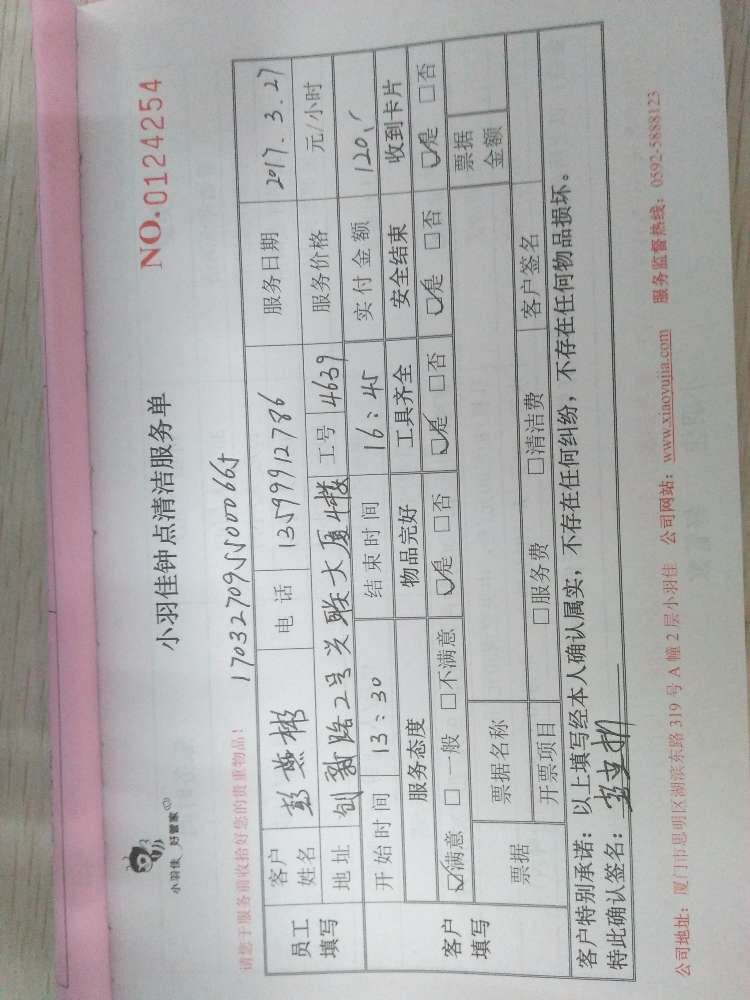 小羽佳 好管家
小羽佳钟点清洁服务单
NO.0124254
请您于服务前收拾好您的贵重物品!
1703270955000665
员工填写
客户姓名 彭燕彬 电话 13599912786 服务日期 2017.3.27
地址 创新路2号兴联大厦4楼 工号 4639 服务价格 元/小时
客户填写
开始时间 13:30 结束时间 16:45 实付金额 120
服务态度 物品完好 工具齐全 安全结束 收到卡片
☑满意 □一般 □不满意 ☑是 □否 ☑是 □否 ☑是 □否 ☑是 □否
票据 票据名称 票据金额
开票项目 □服务费 □清洁费 客户签名
客户特别承诺:以上填写经本人确认属实,不存在任何纠纷,不存在任何物品损坏。
特此确认签名:
公司地址:厦门市思明区湖滨东路319号A幢2层小羽佳 公司网站:www.xiaoyujia.com 服务监督热线:0592-5888123